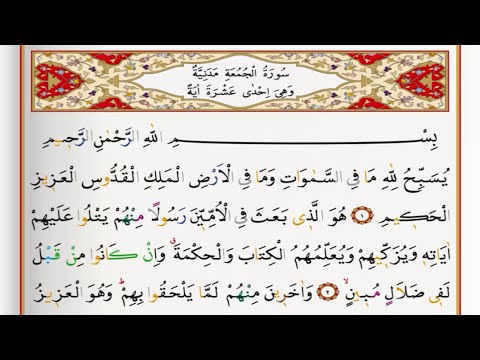 سُورَةُ الْجُمُعَةِ مَدَنِيَّةٌ
وَهِيَ اِحْدٰى عَشْرَةَ اٰيَةً
بِسْمِ اللهِ الرَّحْمٰنِ الرَّحٖيمِ
يُسَبِّحُ لِلهِ مَا فِي السَّمٰوَاتِ وَمَا فِي الْاَرْضِ الْمَلِكِ الْقُدُّوسِ الْعَزٖيزِ
الْحَكٖيمِ ﴿١﴾ هُوَ الَّذٖى بَعَثَ فِي الْاُمِّيّٖنَ رَسُولًا مِنْهُمْ يَتْلُوا عَلَيْهِمْ
اٰيَاتِهٖ وَيُزَكّٖيهِمْ وَيُعَلِّمُهُمُ الْكِتَابَ وَالْحِكْمَةَۗ وَاِنْ كَانُوا مِنْ قَبْلُ
لَفٖى ضَلَالٍ مُبٖينٍۙ ﴿٢﴾ وَاٰخَرٖينَ مِنْهُمْ لَمَّا يَلْحَقُوا بِهِمْۜ وَهُوَ الْعَزٖيزُ